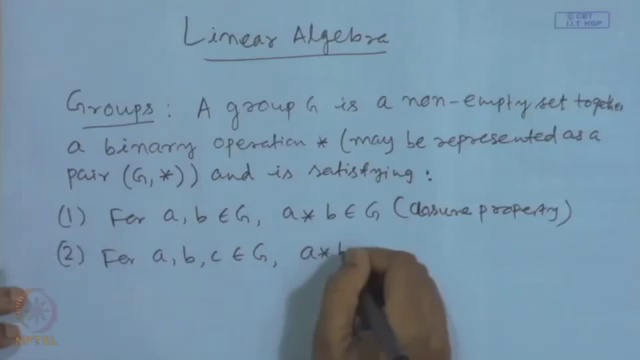 © CET
I.I.T. KGP
Linear Algebra
Groups : A group G is a non-empty set together
a binary operation * (may be represented as a
pair (G, *)) and is satisfying :
(1) For a, b ∈ G, a * b ∈ G (closure property)
(2) For a, b, c ∈ G, a * b
NPTEL